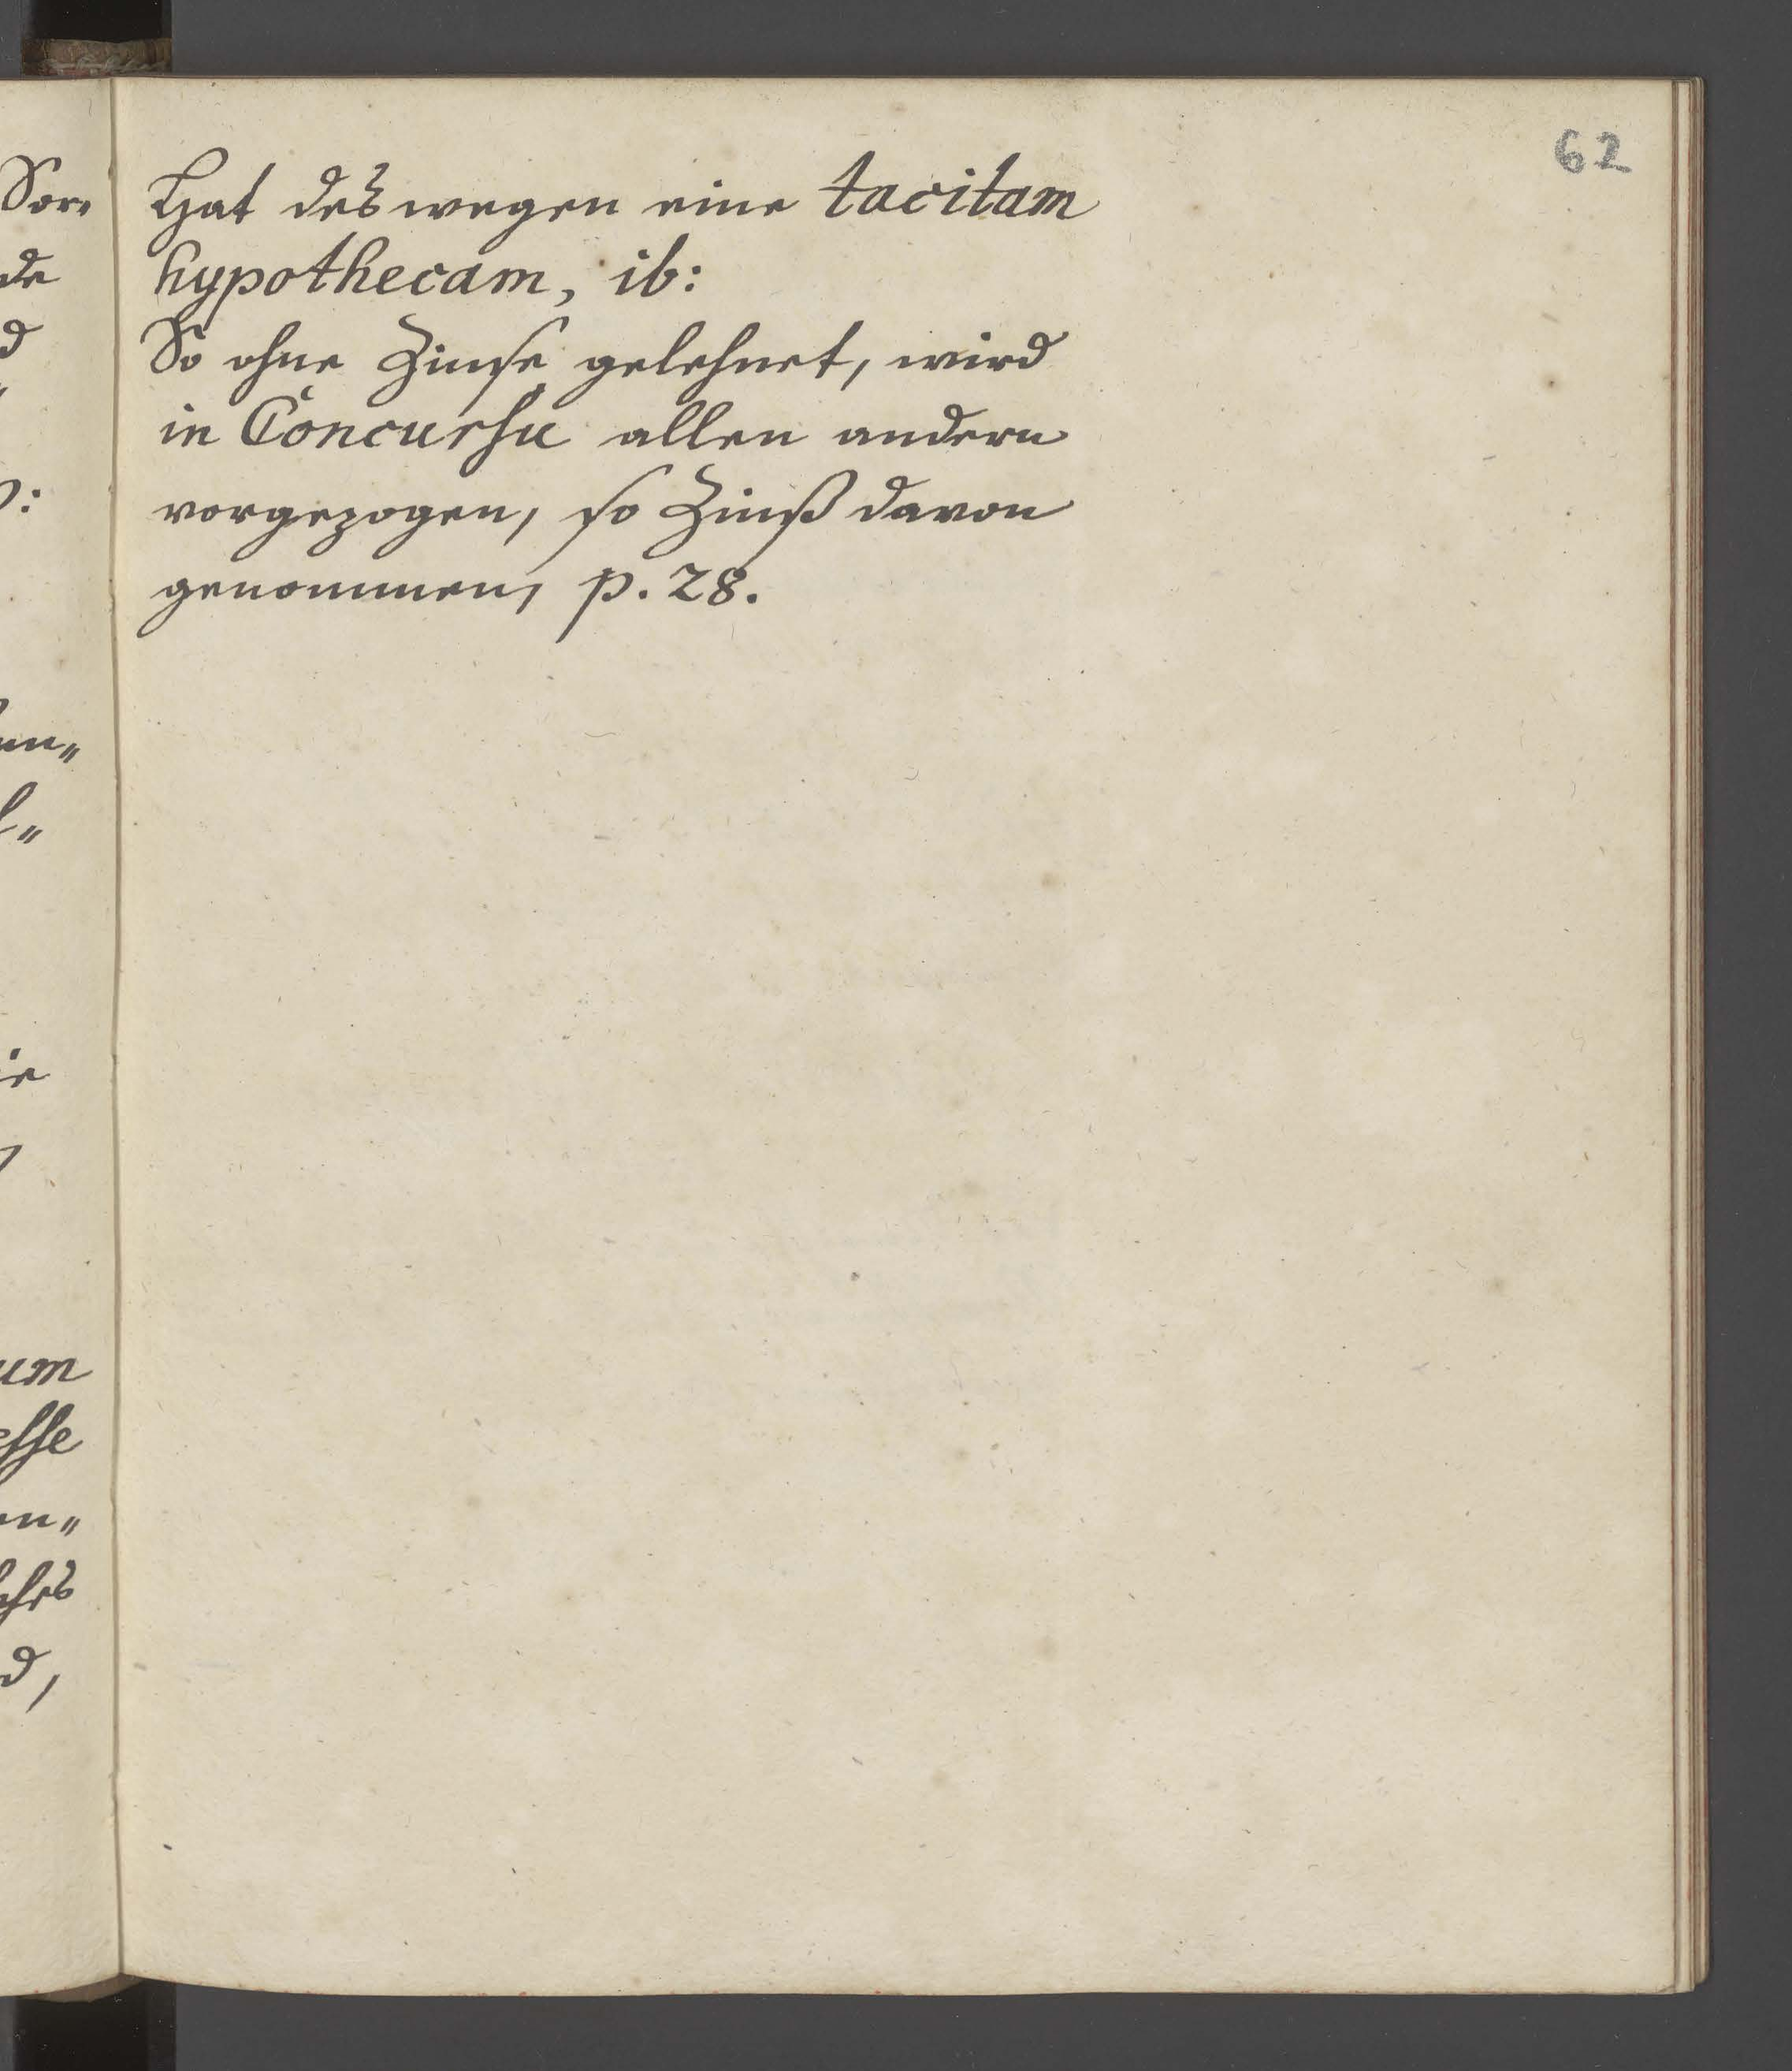 62
Hat deswegen eine tacitam
hypothecam, ib:
So ohne Zinse gelehnet, wird
in Concursu allen andern
vorgezogen, so Zinß davon
genommen, p. 28.